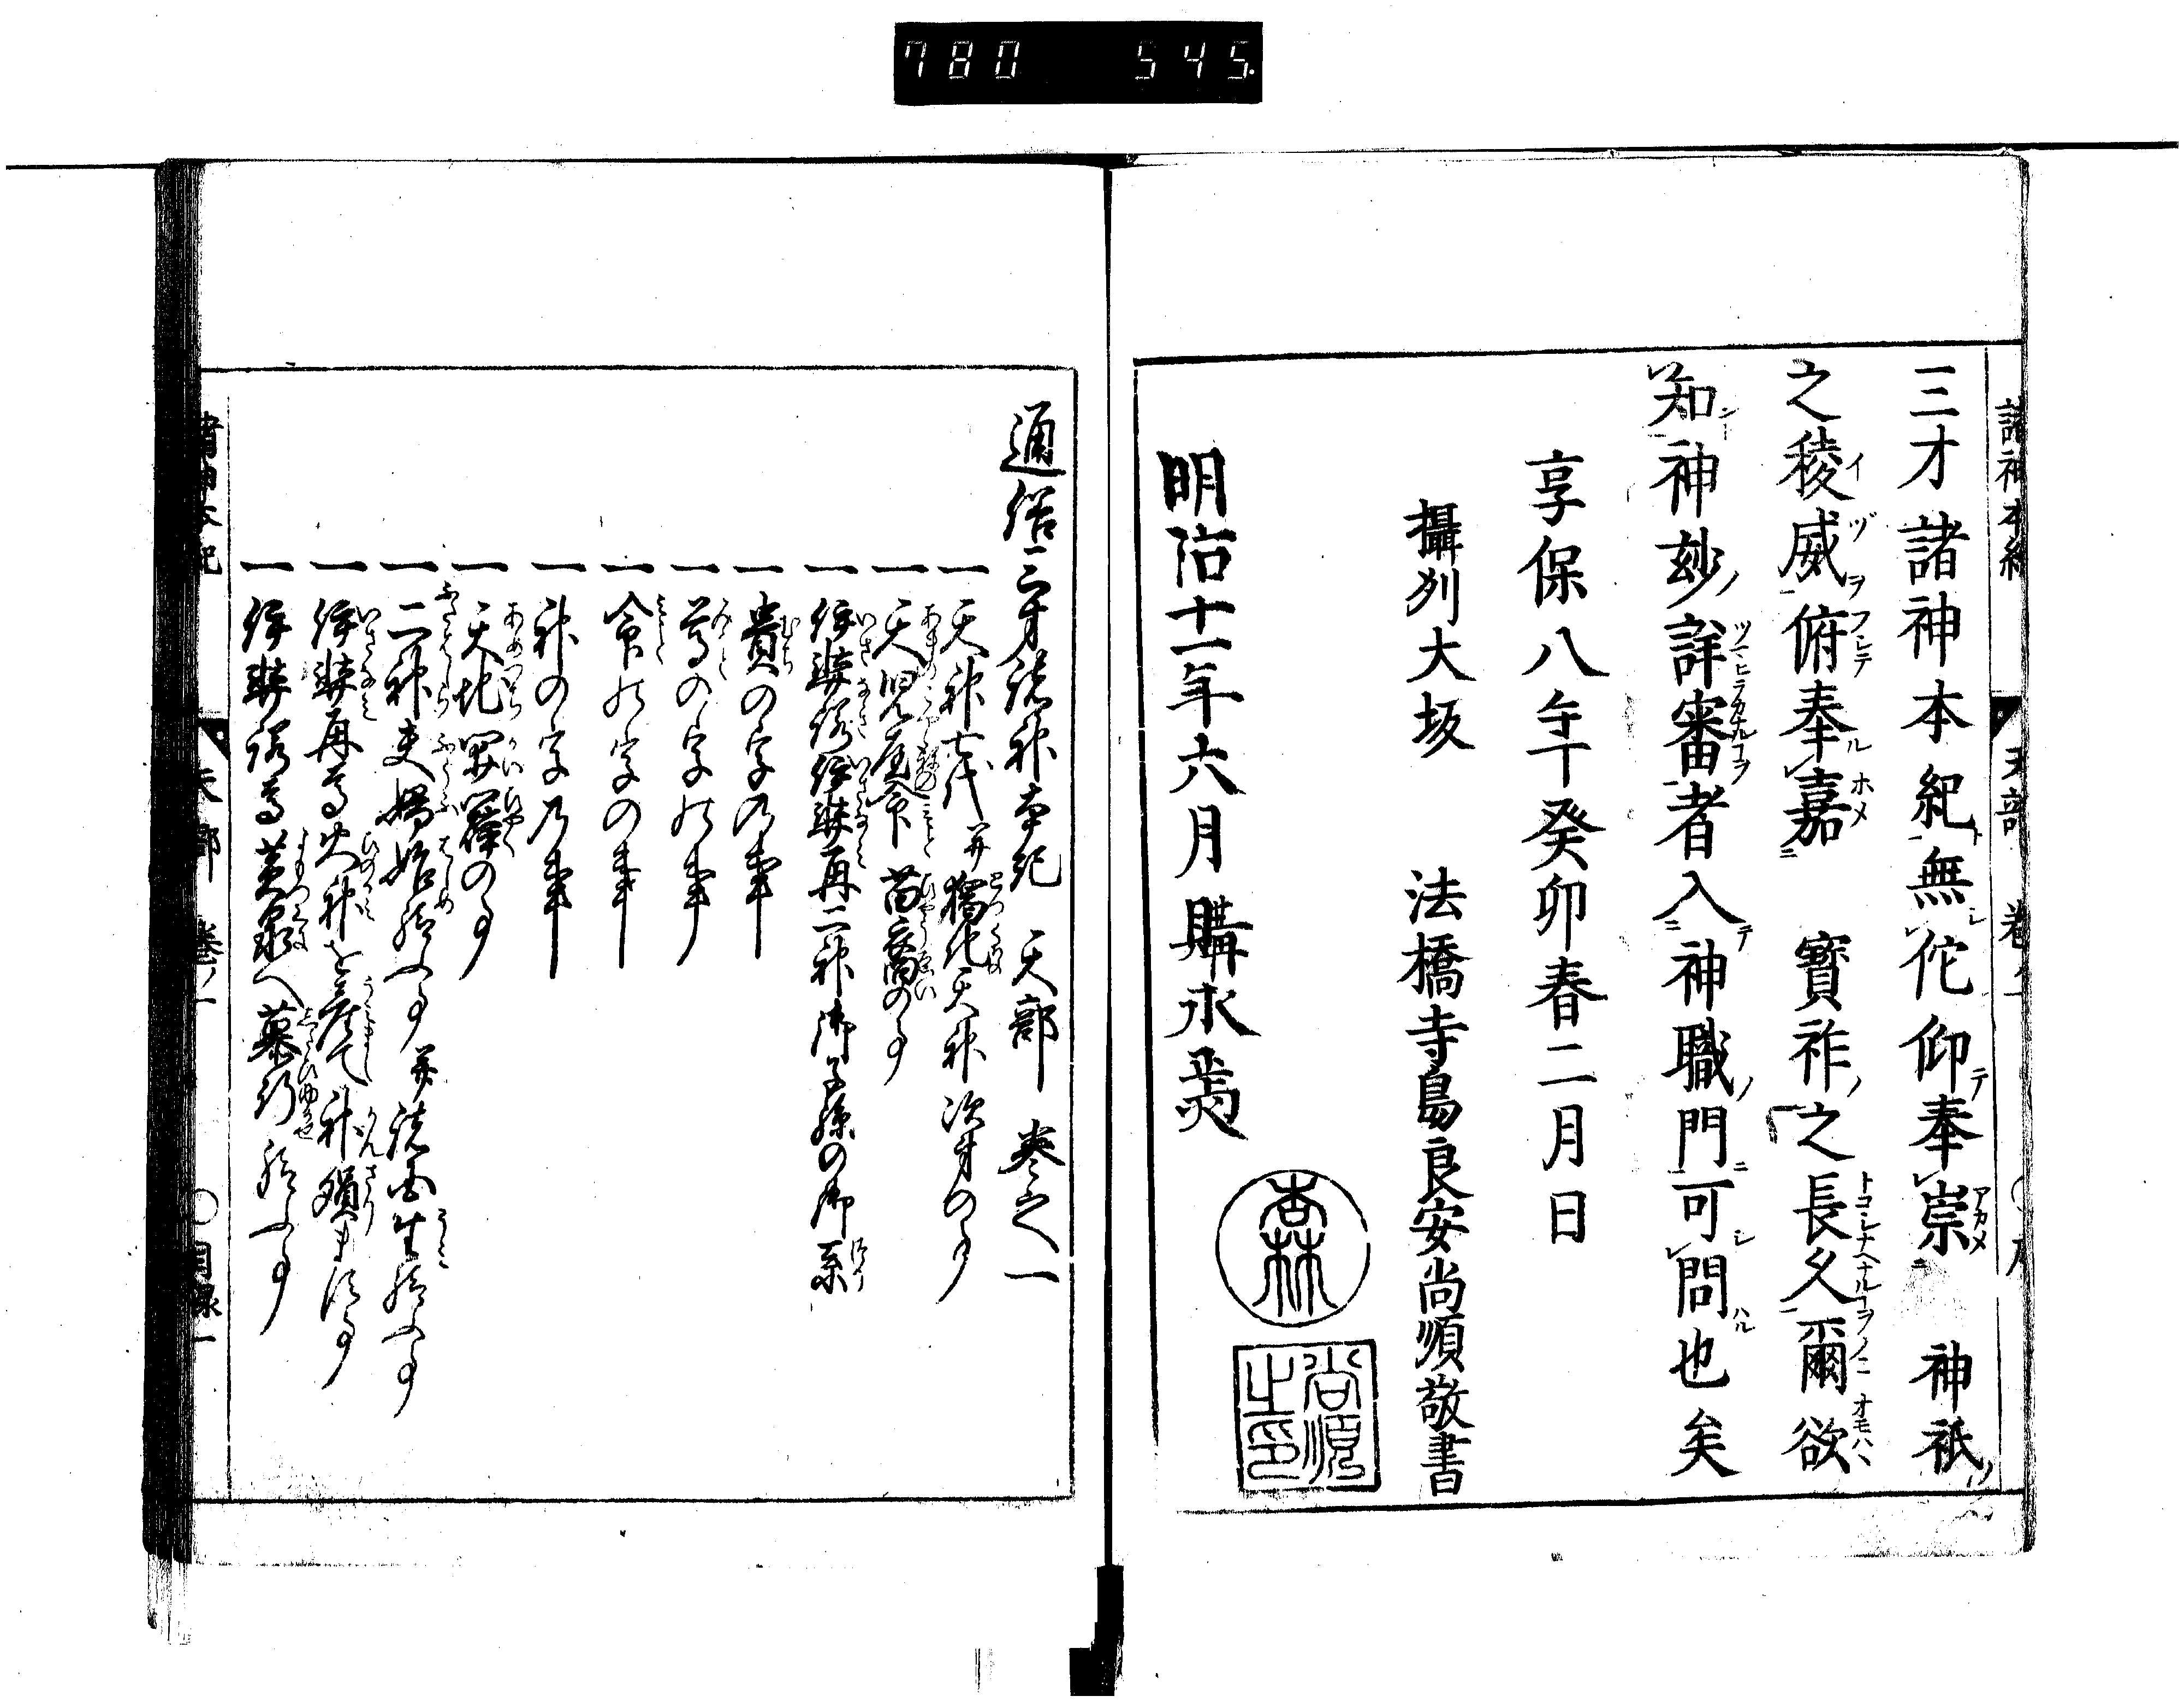 780 545.
三才諸神本紀無佗仰奉崇　神祇
之稜威俯奉嘉　寳祚之長久爾欲
知神玅詳審者入神職門可問也矣
享保八年癸卯春二月日
攝刕大坂　法橋寺島良安尚順敬書
明治十一年六月購求焉
杏林
尚順之印
通俗三才諸神本紀　天部　巻之一
一天神七代并獨化天神次才の事
一天児屋命苗裔の事
一伊弉諾伊弉冊二神御子孫の御系
一貴の字乃事
一尊の字の事
一命の字の事
一神の字乃事
一天地開闢の事
一二神夫婦始給ふ事并諸国生給ふ事
一伊弉冊尊火神を産て神殞ます事
一伊弉諾尊黄泉へ慕行給ふ事
諸神本紀　天部　巻ノ一　〇目録一